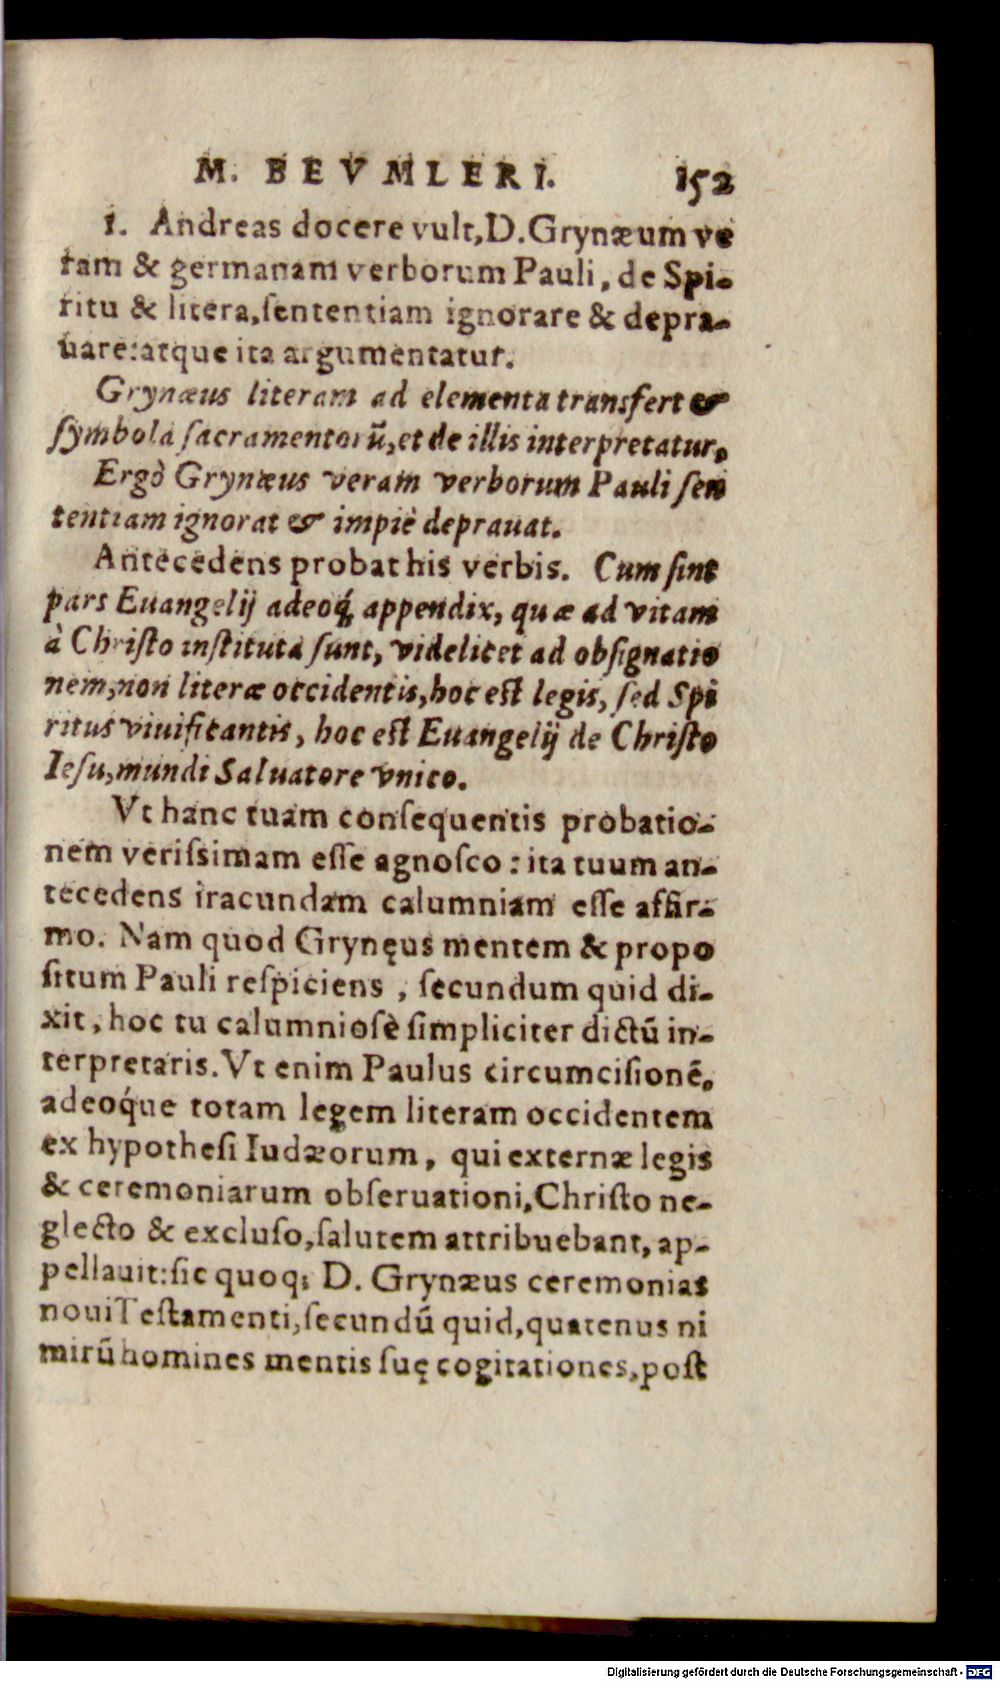 M. BEVMLERI. 152
1. Andreas docere vult, D. Grynæum ve
ram & germanam verborum Pauli, de Spi-
ritu & litera, sententiam ignorare & depra-
uare: atque ita argumentatur.
Grynæus literam ad elementa transfert &
symbola sacramentorū, et de illis interpretatur.
Ergò Grynæus veram verborum Pauli sen
tentiam ignorat & impiè deprauat.
Antecedens probat his verbis. Cum sint
pars Euangelij adeoq́; appendix, quæ ad vitam
à Christo instituta sunt, videlicet ad obsignatio
nem, non literæ occidentis, hoc est legis, sed Spi
ritus viuificantis, hoc est Euangelij de Christo
Iesu, mundi Saluatore vnico.
Vt hanc tuam consequentis probatio-
nem verissimam esse agnosco: ita tuum an-
tecedens iracundam calumniam esse affir-
mo. Nam quod Grynęus mentem & propo
situm Pauli respiciens, secundum quid di-
xit, hoc tu calumniosè simpliciter dictū in-
terpretaris. Vt enim Paulus circumcisionē,
adeoq́ue totam legem literam occidentem
ex hypothesi Iudæorum, qui externæ legis
& ceremoniarum obseruationi, Christo ne-
glecto & excluso, salutem attribuebant, ap-
pellauit: sic quoq; D. Grynæus ceremonias
noui Testamenti, secundū quid, quatenus ni
mirū homines mentis suę cogitationes, post
Digitalisierung gefördert durch die Deutsche Forschungsgemeinschaft - DFG